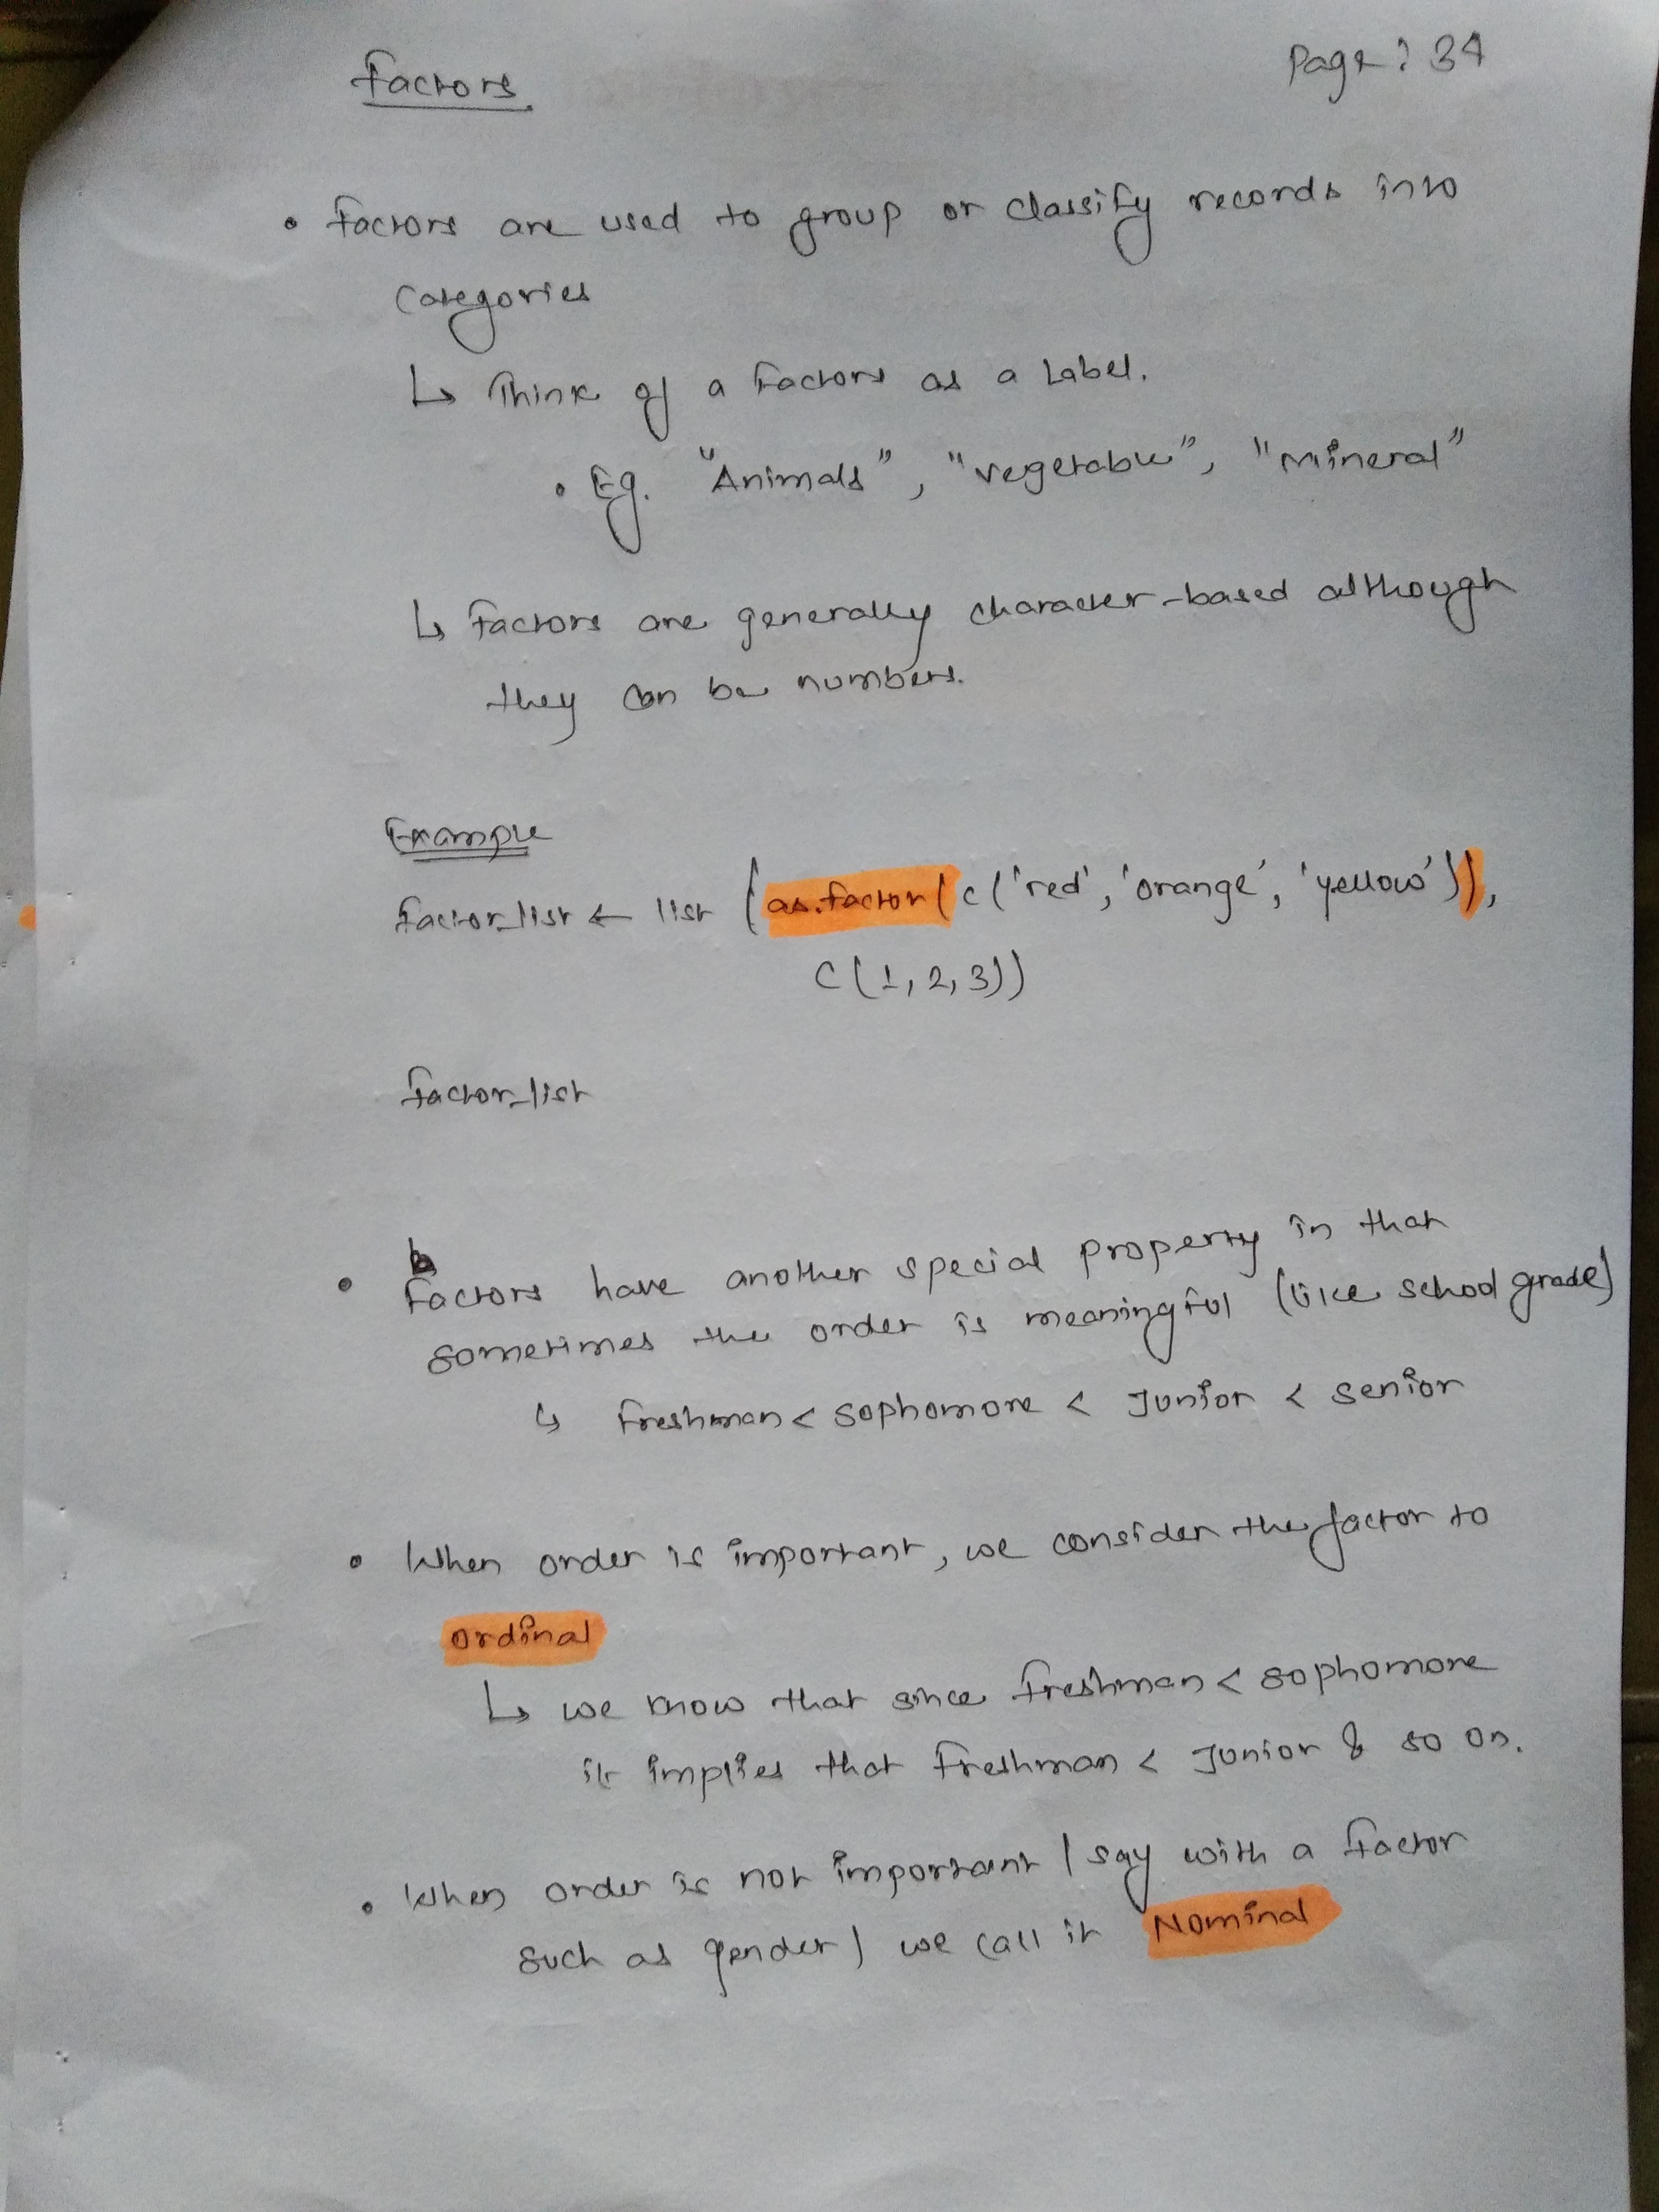 Factors
Page: 34
• Factors are used to group or classify records into
categories
↳ Think of a Factors as a Label.
• Eg. "Animals", "vegetable", "Mineral"
↳ Factors are generally character-based although
they can be numbers.
Example
Factor_list ← list (as.factor(c('red', 'orange', 'yellow')),
c(1,2,3))
Factor_list
• Factors have another special property in that
sometimes the order is meaningful (like school grade)
↳ Freshman < Sophomore < Junior < Senior
• When order is important, we consider the factor to
ordinal
↳ we know that since Freshman < Sophomore
it implies that Freshman < Junior & so on.
• When order is not important (say with a factor
such as gender) we call it Nominal